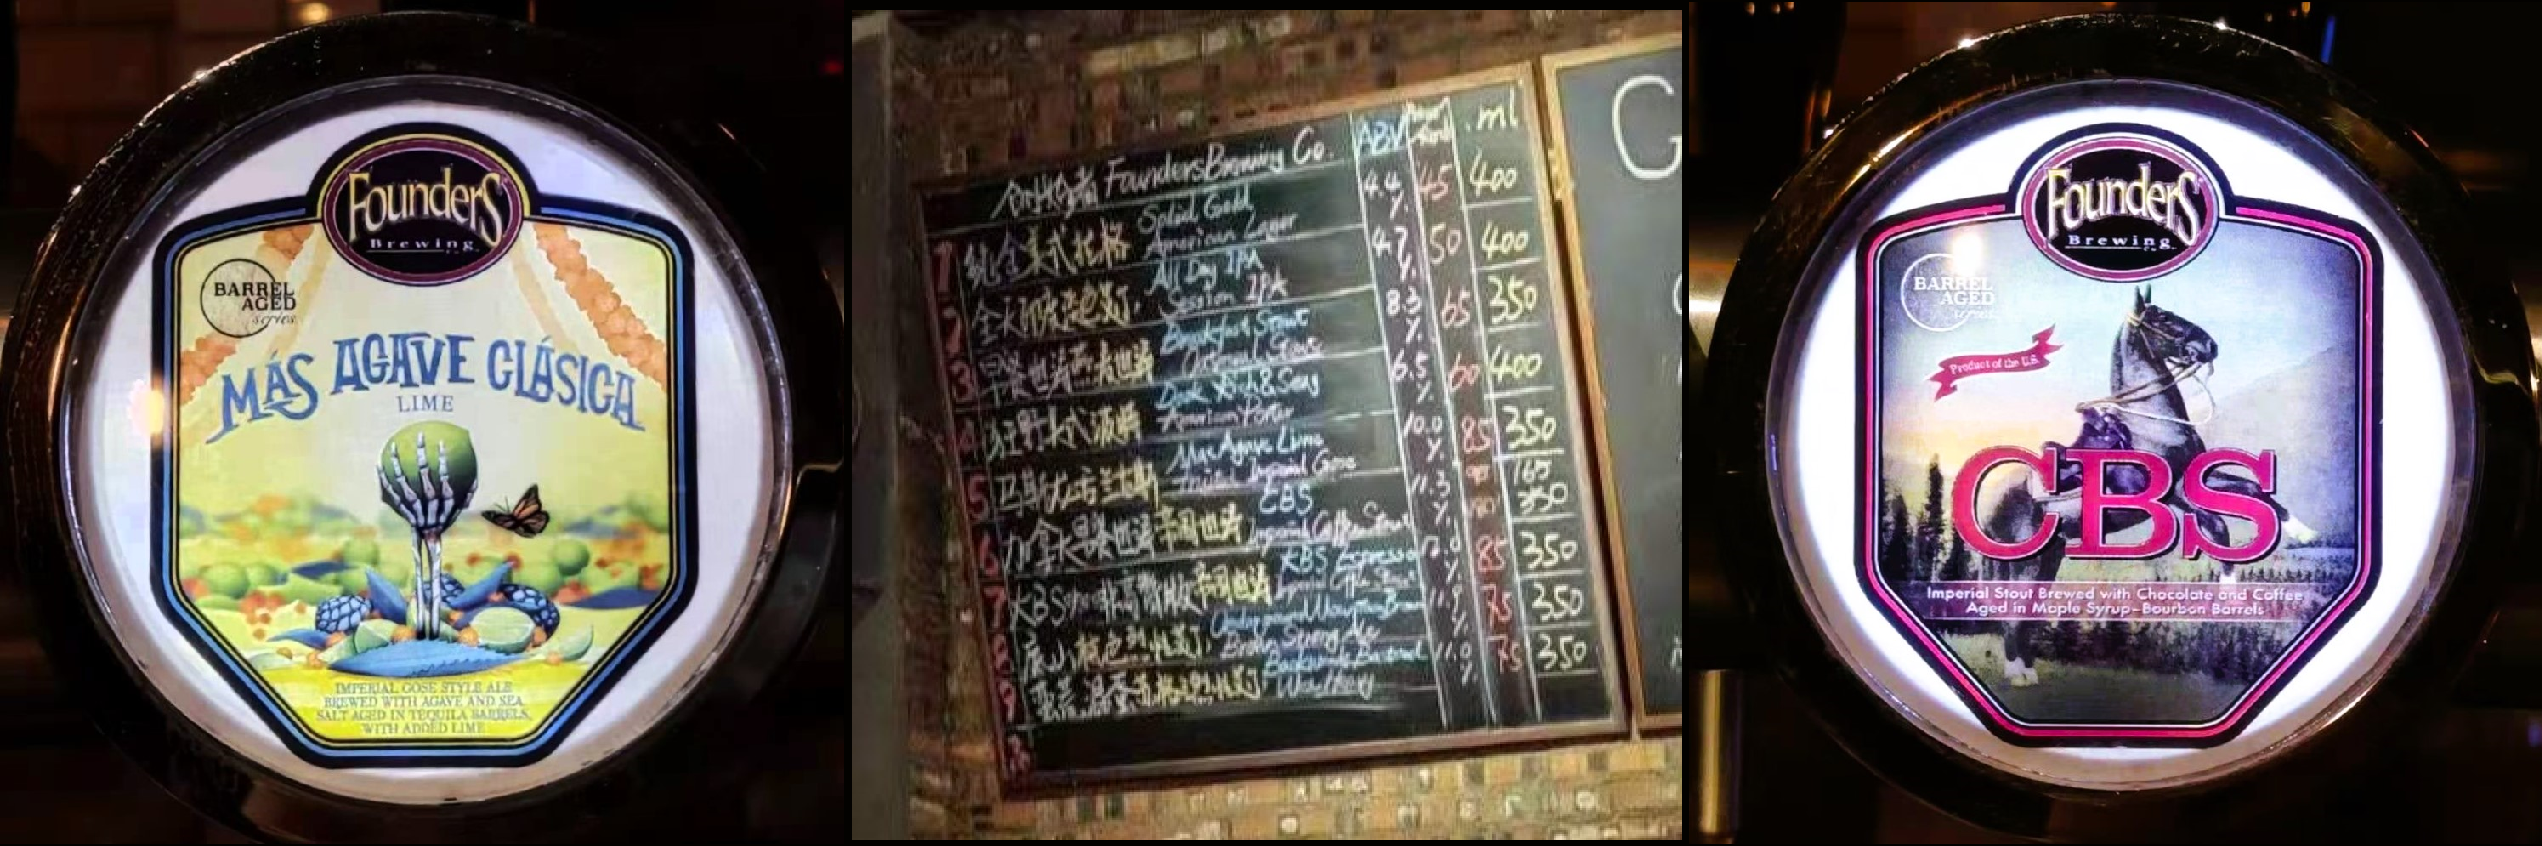 Founders
Brewing Co.
BARREL
AGED
series
MÁS AGAVE CLÁSICA
LIME
IMPERIAL GOSE STYLE ALE
BREWED WITH AGAVE AND SEA
SALT AGED IN TEQUILA BARRELS,
WITH ADDED LIME
创始者 Founders Brewing Co. ABV ml
Solid Gold 4.4 45 400
1 纯金美式拉格 American Lager %
All Day IPA 4.7 50 400
2 全天 Session IPA %
Breakfast Stout 8.3 65 350
3 早餐世涛燕麦世涛 Oatmeal Stout %
Dark Rich & Sexy 6.5 60 400
4 狂野美式波特 American Porter %
Mas Agave Lime 10.0 85 350
5 Imperial Gose %
CBS 11.3 165
6 加拿大早餐世涛帝国世涛 Imperial Coffee Stout % 350
KBS Espresso 12.0 85 350
7 KBS 帝国世涛 Imperial %
Underground Mountain Brown 11.9 75 350
8 底山棕色烈性艾尔 Brown Strong Ale %
Backwoods Bastard 11.0 75 350
9 Wee Heavy %
G
Founders
Brewing Co.
BARREL
AGED
series
Product of the U.S.
CBS
Imperial Stout Brewed with Chocolate and Coffee
Aged in Maple Syrup-Bourbon Barrels